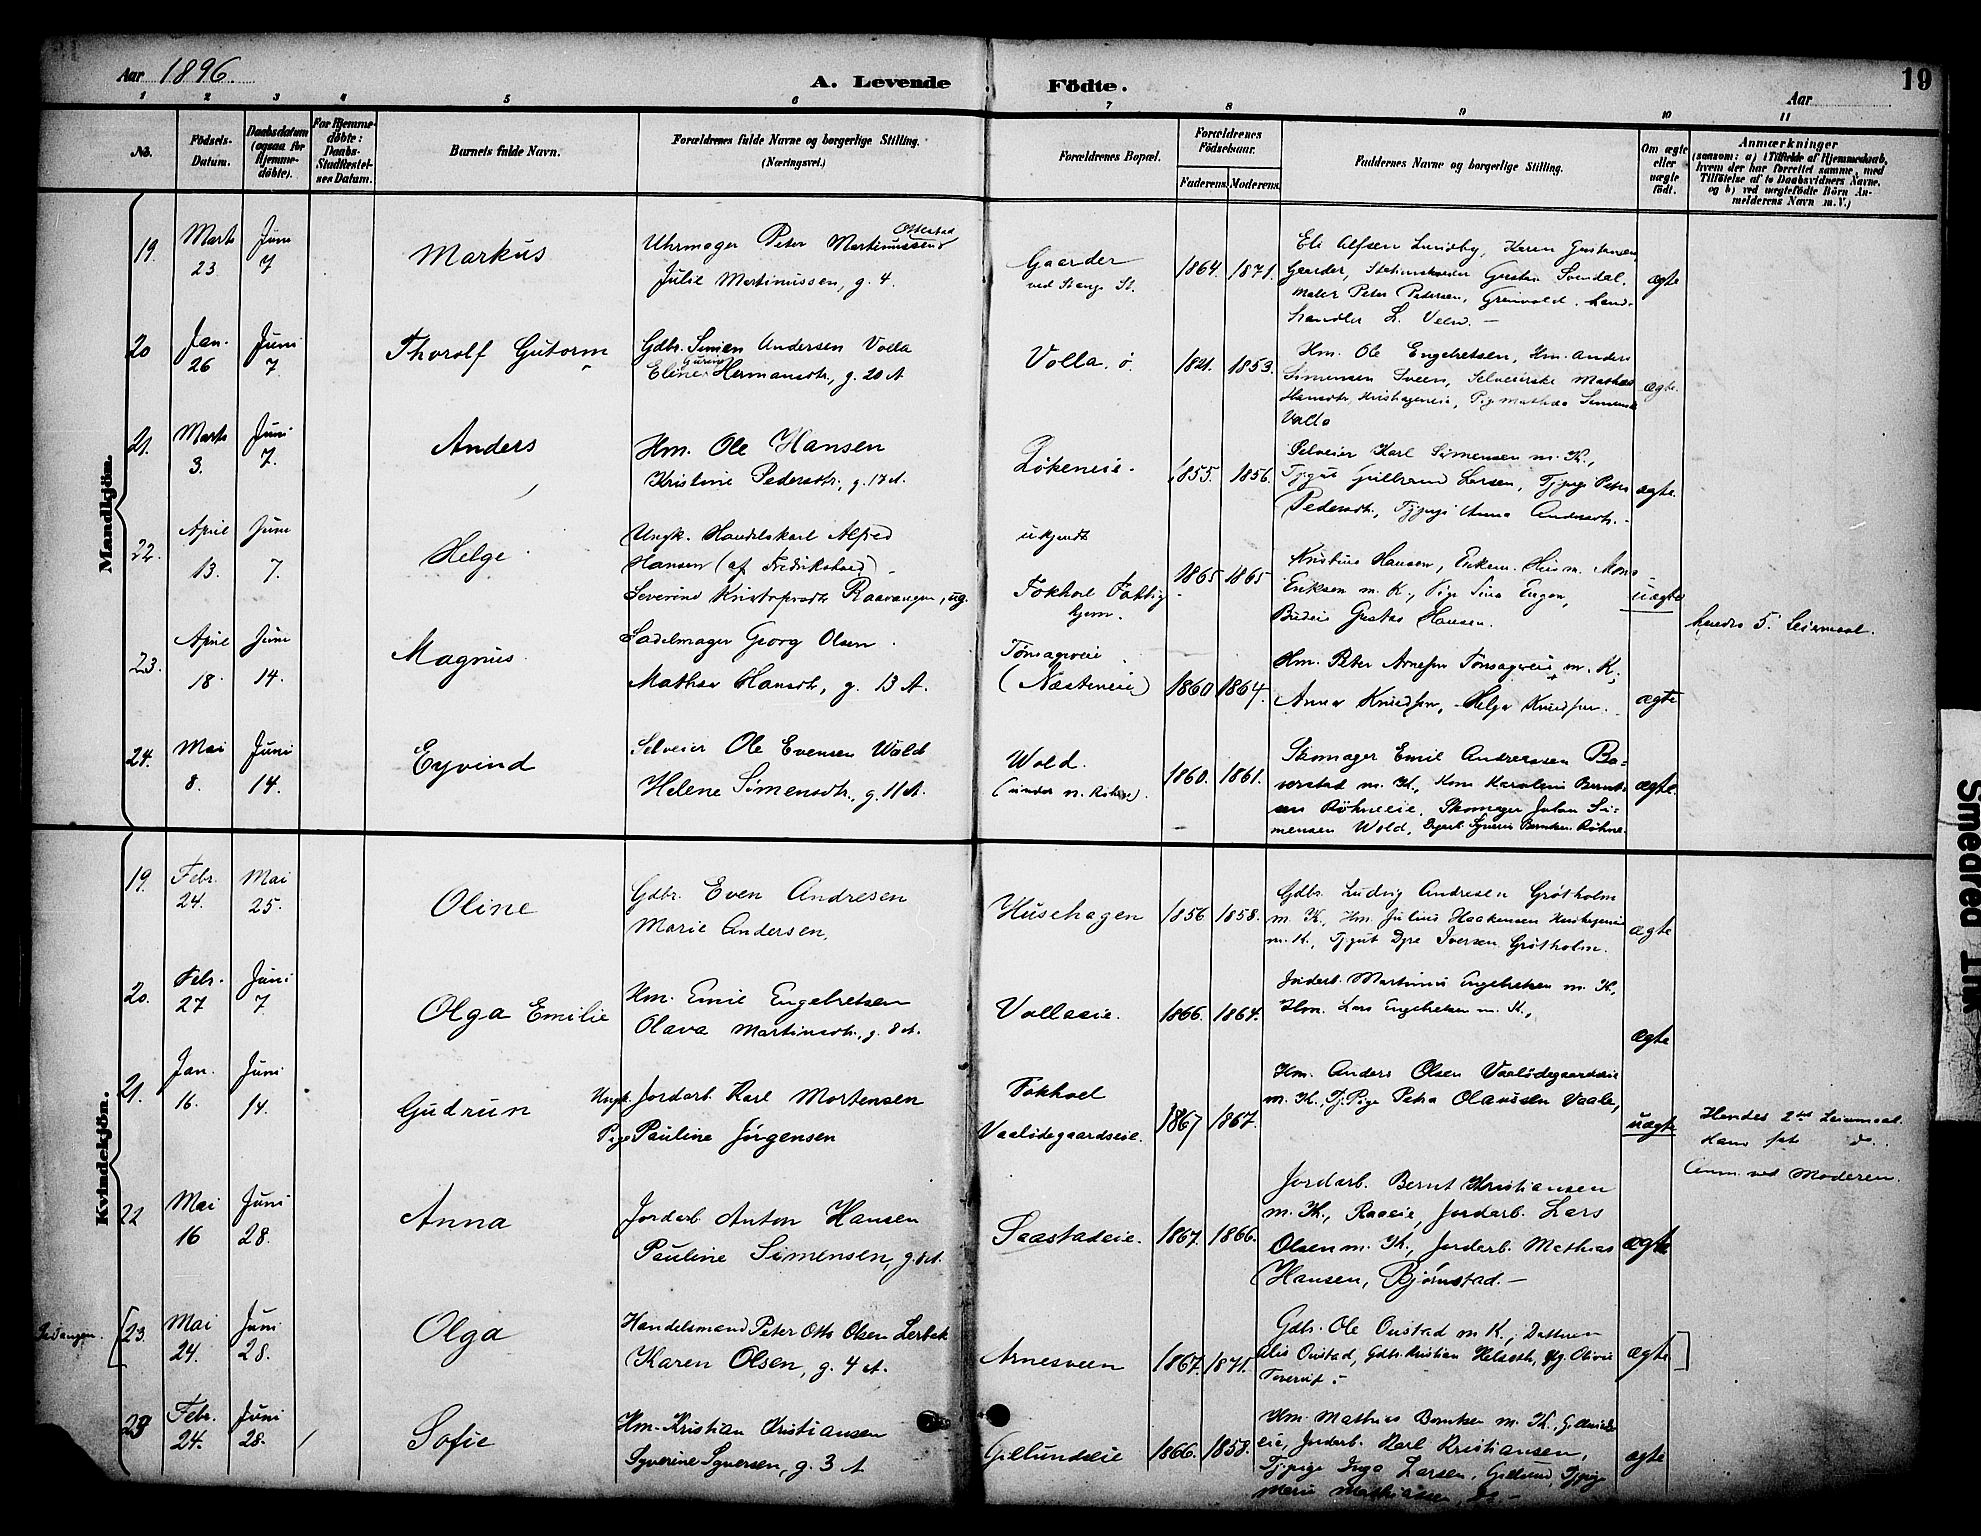 Aar 1896.
A. Levende Födte.
Aar
19
1 2 3 4 5 6 7 8 9 10 11
No.
Födsels-Datum.
Daabsdatum (ogsaa for Hjemmedöbte).
For Hjemmedöbte: Daabs-Stadfæstelses Datum.
Barnets fulde Navn.
Forældrenes fulde Navne og borgerlige Stilling. (Næringsvei.)
Forældrenes Bopæl.
Forældrenes Födselsaar.
Faderens Moderens.
Faddernes Navne og borgerlige Stilling.
Om ægte eller uægte født.
Anmærkninger
(saasom: a) i Tilfælde af Hjemmedaab, hvem der har forrettet samme, med Tilföielse af to Daabsvidners Navne, og b) ved uægtefödte Börn Anmelderens Navn m.V.)
Mandkjön.
19. Marts 23 Juni 7 Markus
Uhrmager Peter Martinussen Ottestad
Julie Martinussen, g. 4.
Gaarder
ved Stange St.
1864. 1871.
Eli Alfsen Lundby, Karen Gustavsen
Gaarder, Gustav Svendal,
Maler Peter Pedersen, Grønvold, Land-
handler L. Velo. –
ægte
20 Jan. 26 Juni 7. Thorolf Gutorm
Gdbr. Simen Andersen Volla
Eline Gurine Hermansdtr., g. 20 A
Volla. ö.
1821. 1853.
Hm. Ole Engebretsen, Hm. Anders
Simensen Sveen, Selveierske Mathea
Hansdtr. Hushageneie, Pige Mathea Simensd.
Volla
ægte.
21. Marts 3. Juni 7. Anders
Hm. Ole Hansen
Kristine Pedersdtr., g. 17 A.
Lökeneie.
1855. 1856.
Selveier Karl Simensen m. K.,
Tjgut Gulbrand Larsen, Tjpige Petra
Pedersdtr., Tjpige Anna Andersdtr. –
ægte.
22. April 13. Juni 7. Helge
Ungk. Handelskarl Alfred
Hansen (af Fredrikshald).
Severine Kristofersdtr Raavangen, ug.
ukjendt
Fokhoel Fattig
hjem.
1865 1865
Kristine Hansen, Hm. Mons
Eriksen m. K., Pige Sina Engen,
Budeie Gusta Hansen.
uægte
hendes 5. Leiermaal.
23. April 18. Juni 14. Magnus.
Sadelmager Georg Olsen
Mathea Hansdtr., g. 13 A.
Tönsagereie
(Næsteneie)
1860 1864.
Hm. Peter Arnesen Tönsagereie m. K.,
Anna Knudsen, Helga Knudsen.
ægte
24. Mai 8. Juni 14. Eyvind
Selveier Ole Evensen Wold
Helene Simensdtr., g. 11 A.
Wold.
(under n. Röhne).
1860. 1861.
Skomager Emil Andreassen Ba-
verstad m. K., Kone Karoline Bernt-
sen Röhneeie, Skomager Johan Si-
mensen Wold, Berntsen Röhne.
ægte.
Kvindekjön.
19. Febr. 24. Mai 25. Oline
Gdbr. Even Andresen
Marie Andersen,
Husehagen
1856 1858.
Gdbr. Ludvig Andresen Gröthholm
m. K., Hm. Julius Haakensen Hushageneie
m. K., Tjgut Dyre Iversen Gröthholm.
ægte
20. Febr. 27 Juni 7 Olga Emilie
Hm. Emil Engebretsen
Olava Martinsdtr., g. 8 A.
Vollaeie.
1866. 1864.
Jordarb. Martinus Engebretsen m. K.,
Hm. Lars Engebretsen m. K.,
ægte
21. Jan. 16. Juni 14. Gudrun
Ungk. Jordarb. Karl Mortensen
Pige Pauline Jörgensen
Fokhoel
Vaalidegaardseie.
1867 1867.
Hm. Anders Olsen Vaalidegaardseie
m. K., Tj. Pige Petra Olaussen Vaale,
uægte
Hendes 2det Leiermaal.
Hans 1ste do.
Anm. ved Moderen.
22 Mai 16 Juni 28. Anna
Jordarb. Anton Hansen
Pauline Simensen, g. 8 A.
Saastadeie.
1867. 1866.
Jordarb. Bernt Kristiansen
m. K., Raaeie, Jordarb. Lars
Olsen m. K., Jordarb. Mathias
Hansen, Bjørnstad. –
ægte
23. Mai 24. Juni 28. Olga
Handelsmand Peter Otto Olsen Lerbek
Karen Olsen, g. 4 A.
Arnesveen
1867. 1871.
Gdbr. Ole Oustad m K., Datteren
Oustad, Gdbr. Kristian Helseth, Olivie
ægte
Febr. 24. Juni 28. Sofie
Hm. Kristian Kristiansen
Syverine Syversen, g. 3 A
Gillundseie
1866. 1858.
Hm. Mathias Berntsen m. K., Gillunds-
eie, Jordarb. Karl Kristiansen,
Tjpige Inga Larsen, Gillund, Tjpige
Marie Mathiassen, do. –
ægte
Smeared Ink